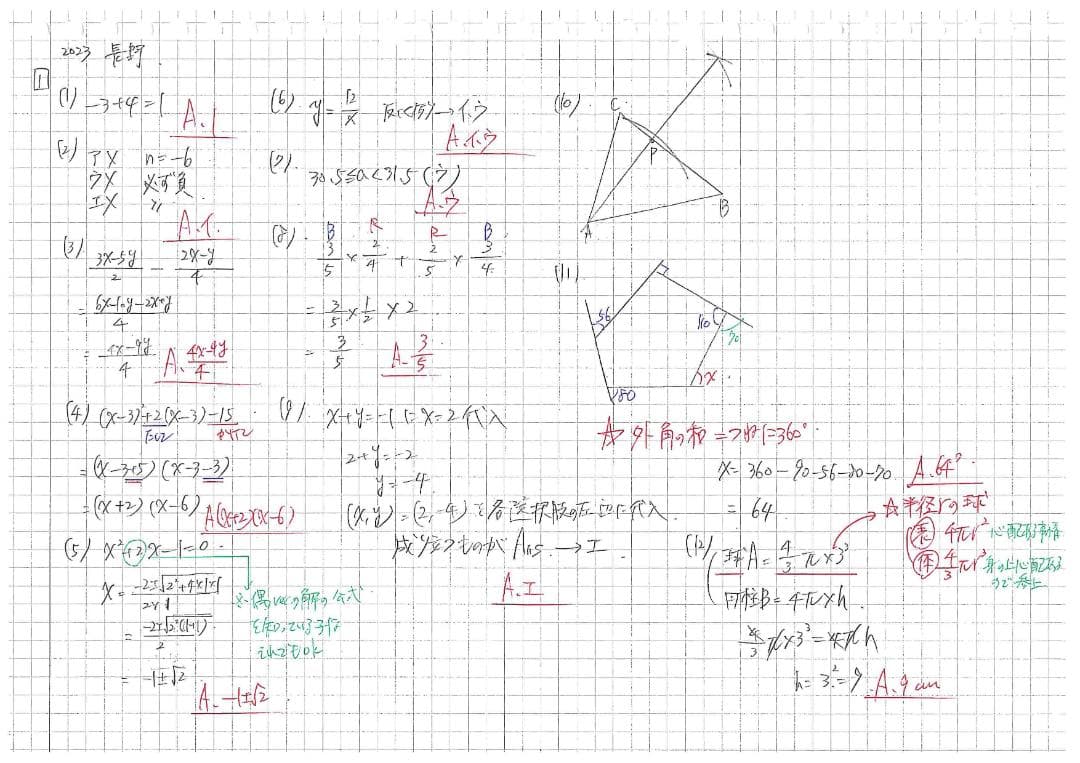 2023 長野
1
(1) -3+4=1
A. 1
(2) アX n=-6
ウX 必ず負
エX 〃
A. イ.
(3) 3x-5y/2 - 2x-y/4
= 6x-10y-2x+y/4
= 4x-9y/4
A. 4x-9y/4
(4) (x-3)²+2(x-3)-15
たして かけて
=(x-3+5)(x-3-3)
=(x+2)(x-6)
A(x+2)(x-6)
(5) x²+2x-1=0
x= -2±√2²+4×1×1/2×1
= -2±√2²(1+1)/2
= -1±√2
A. -1±√2
※偶verの解の公式
を知っている子は
それでもOK
(6) y=12/x 反比例→イ,ウ
A. イ,ウ
(7)
30.5≦a<31.5 (ウ)
A. ウ
(8) B R R B
3/5 × 2/4 + 2/5 × 3/4
= 3/5 × 1/2 × 2
= 3/5
A. 3/5
(9) x+y=-1に x=2代入
2+y=-2
y=-4
(x,y)=(2,-4)を各選択肢の左辺に代入
成り立つものが Ans. → エ
A. エ
(10)
C
P
B
A
(11)
56
110
70
80
x
☆外角の和=つねに360°
x=360-90-56-80-70
= 64
A. 64°
(12) 球A=4/3π×3³
円柱B=4π×h
4/3π×3³=4πh
h=3²=9
A. 9cm
☆半径rの球
表 4πr² 心配ある事情
体 4/3πr³ 身の上に心配ある
ので参上